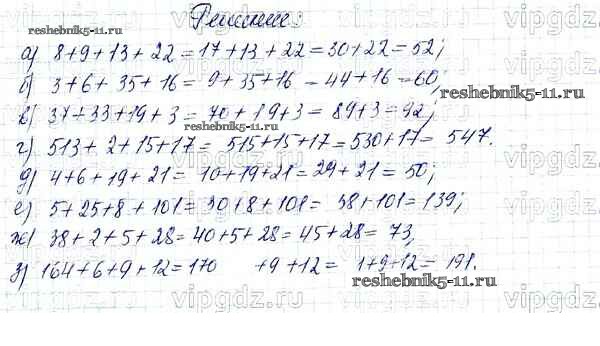 Решение:
а) 8+9+13+22=17+13+22=30+22=52;
б) 3+6+35+16=9+35+16=44+16=60;
reshebnik5-11.ru
в) 37+33+19+3=70+19+3=89+3=92;
reshebnik5-11.ru
г) 513+2+15+17=515+15+17=530+17=547.
д) 4+6+19+21=10+19+21=29+21=50;
е) 5+25+8+101=30+8+101=38+101=139;
ж) 38+2+5+28=40+5+28=45+28=73,
з) 164+6+9+12=170 +9+12= 1+9+12=191.
reshebnik5-11.ru
reshebnik5-11.ru
vipgdz.ru vipgdz.ru vipgdz.ru